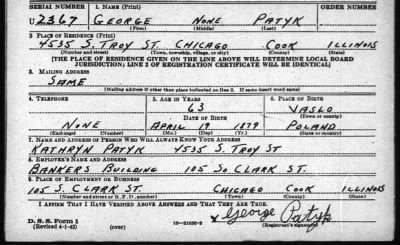 SERIAL NUMBER 1. NAME (Print) ORDER NUMBER
U 2367 GEORGE NONE PATYK
(First) (Middle) (Last)
2. PLACE OF RESIDENCE (Print)
4535 S. TROY ST. CHICAGO COOK ILLINOIS
(Number and street) (Town, township, village, or city) (County) (State)
[THE PLACE OF RESIDENCE GIVEN ON THE LINE ABOVE WILL DETERMINE LOCAL BOARD
JURISDICTION; LINE 2 OF REGISTRATION CERTIFICATE WILL BE IDENTICAL]
3. MAILING ADDRESS
SAME
[Mailing address if other than place indicated on line 2. If same insert word same]
4. TELEPHONE 5. AGE IN YEARS 6. PLACE OF BIRTH
63 VASLO
DATE OF BIRTH (Town or county)
NONE APRIL 19 1879 POLAND
(Exchange) (Number) (Mo.) (Day) (Yr.) (State or country)
7. NAME AND ADDRESS OF PERSON WHO WILL ALWAYS KNOW YOUR ADDRESS
KATHRYN PATYK 4535 S. TROY ST
8. EMPLOYER'S NAME AND ADDRESS
BANKERS BUILDING 105 SO CLARK ST.
9. PLACE OF EMPLOYMENT OR BUSINESS
105 S. CLARK ST. CHICAGO COOK ILLINOIS
(Number and street or R. F. D. number) (Town) (County) (State)
I AFFIRM THAT I HAVE VERIFIED ABOVE ANSWERS AND THAT THEY ARE TRUE.
D. S. S. Form 1
(Revised 4-1-42) (over) 16—21630-2 George Patyk
(Registrant's signature)